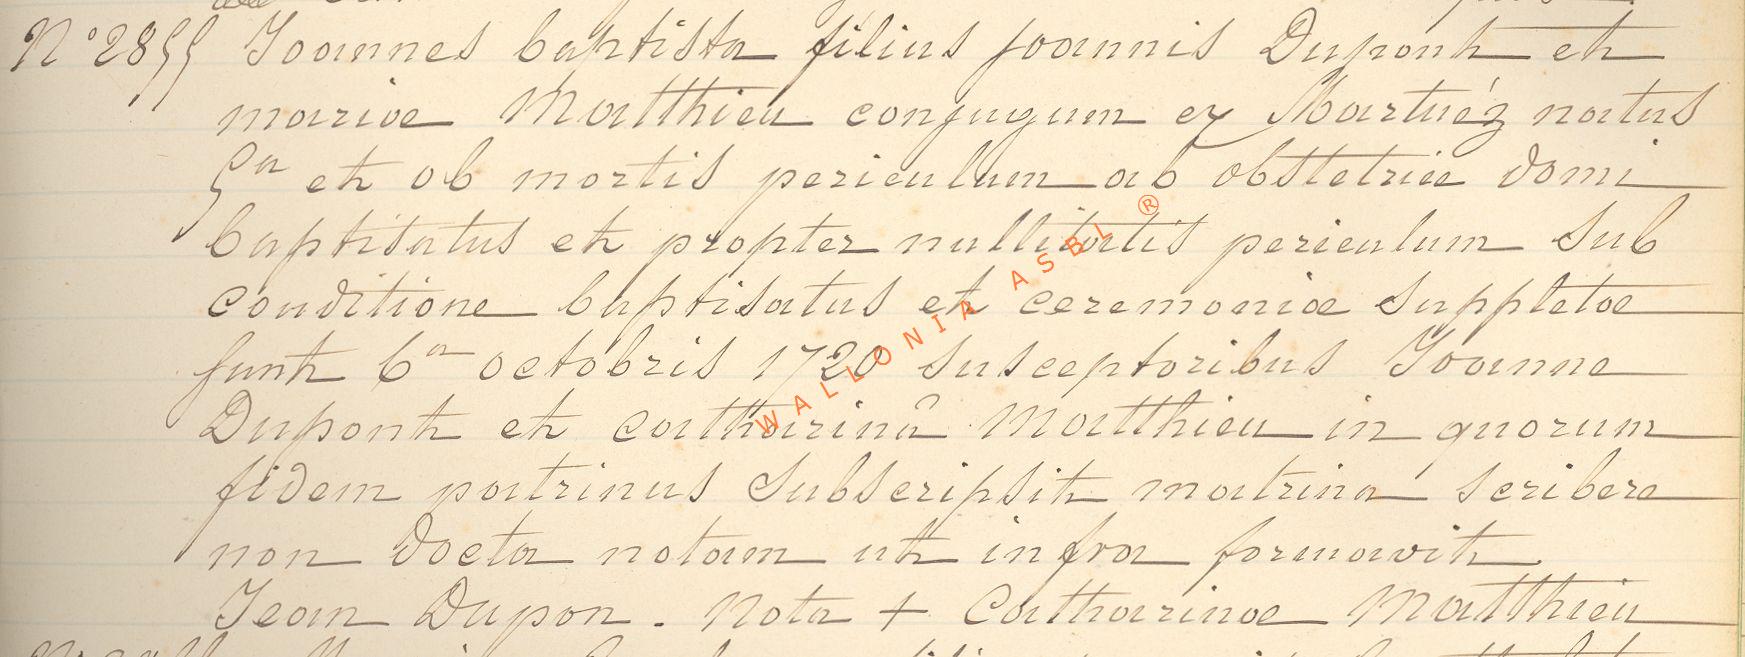 N° 2855 Joannes baptista filius joannis Dupont et
mariæ Matthieu conjugum ex Martué natus
5a et ob mortis periculum ab obstetrice domi
baptisatus et propter nullitatis periculum sub
conditione baptisatus et ceremoniæ suppletæ
sunt 6a octobris 1720 susceptoribus Joanne
Dupont et catharinâ Matthieu in quorum
fidem patrinus subscripsit matrina scribere
non docta notam ut infra formavit.
Jean Dupon. Nota + Catharinæ Matthieu
WALLONIA ASBL ®